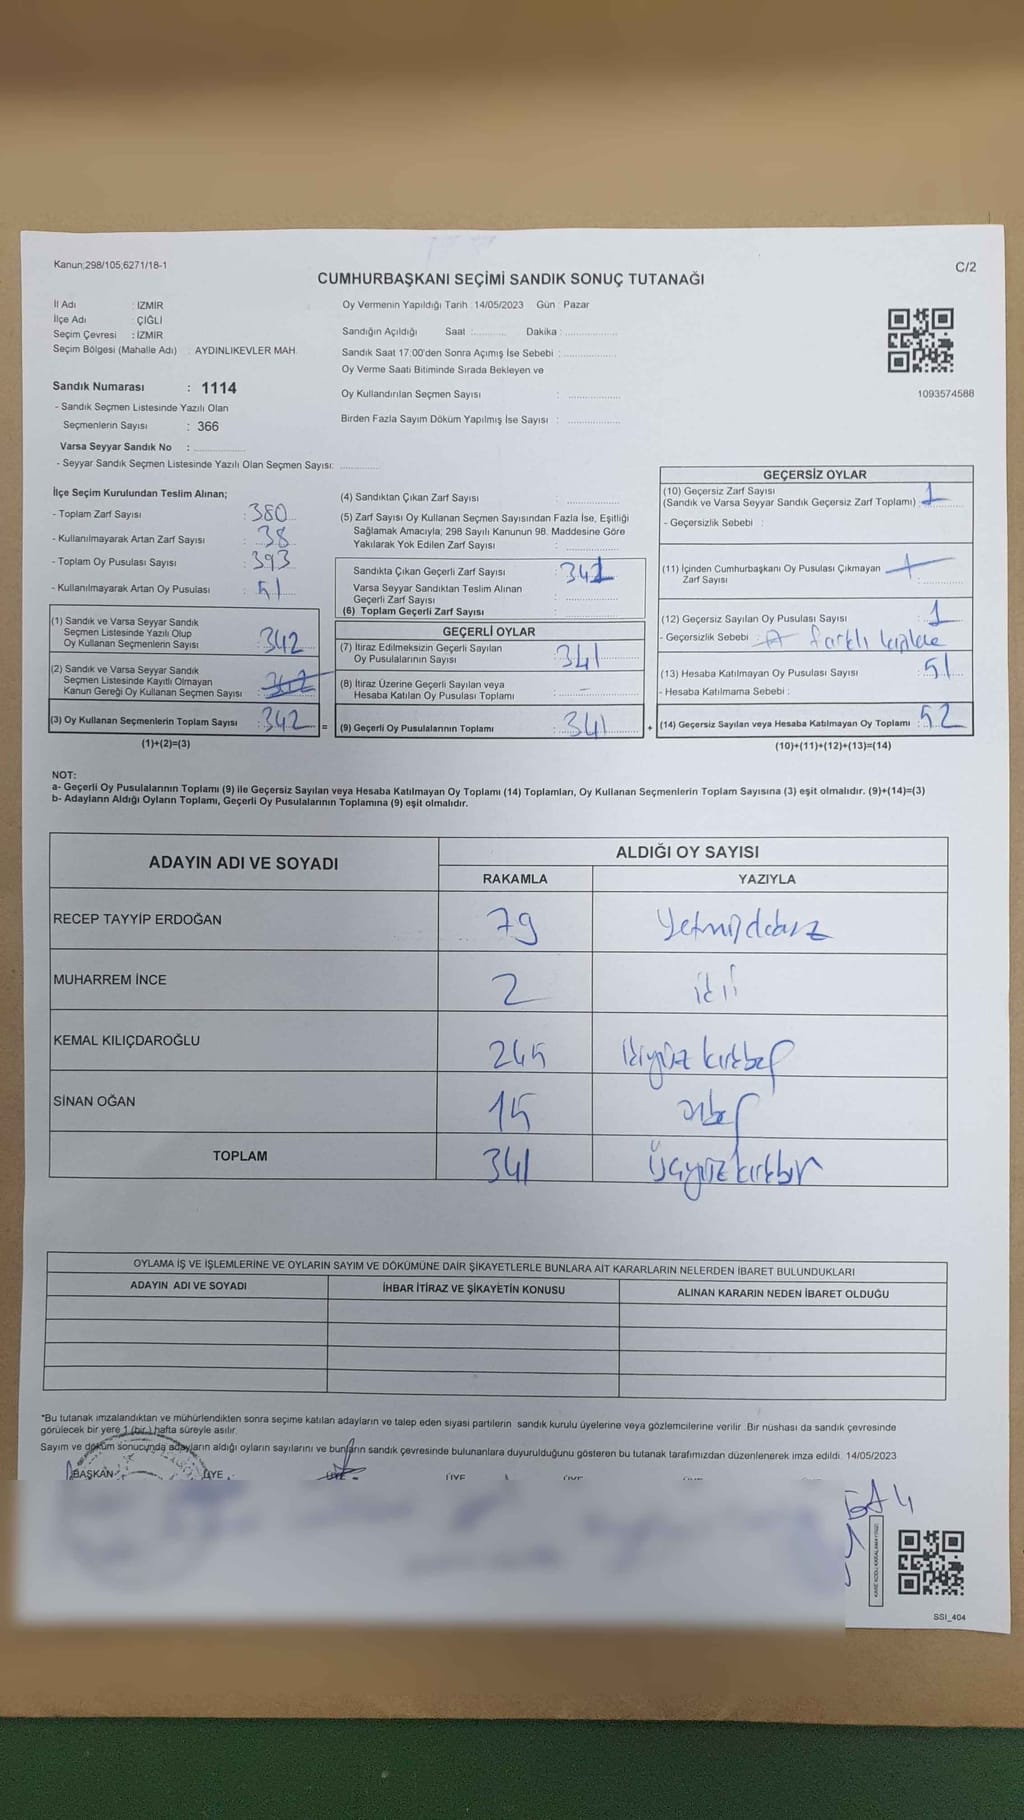 Kanun;298/105,6271/18-1
C/2
CUMHURBAŞKANI SEÇİMİ SANDIK SONUÇ TUTANAĞI
İl Adı : İZMİR
İlçe Adı : ÇİĞLİ
Seçim Çevresi : İZMİR
Seçim Bölgesi (Mahalle Adı) : AYDINLIKEVLER MAH.
Oy Vermenin Yapıldığı Tarih : 14/05/2023 Gün : Pazar
Sandığın Açıldığı Saat : Dakika :
Sandık Saat 17:00'den Sonra Açımış İse Sebebi :
Oy Verme Saati Bitiminde Sırada Bekleyen ve
Oy Kullandırılan Seçmen Sayısı :
Birden Fazla Sayım Döküm Yapılmış İse Sayısı :
1093574588
Sandık Numarası : 1114
- Sandık Seçmen Listesinde Yazılı Olan
Seçmenlerin Sayısı : 366
Varsa Seyyar Sandık No :
- Seyyar Sandık Seçmen Listesinde Yazılı Olan Seçmen Sayısı:
İlçe Seçim Kurulundan Teslim Alınan;
- Toplam Zarf Sayısı : 380
- Kullanılmayarak Artan Zarf Sayısı : 38
- Toplam Oy Pusulası Sayısı : 393
- Kullanılmayarak Artan Oy Pusulası : 51
(1) Sandık ve Varsa Seyyar Sandık
Seçmen Listesinde Yazılı Olup
Oy Kullanan Seçmenlerin Sayısı : 342
(2) Sandık ve Varsa Seyyar Sandık
Seçmen Listesinde Kayıtlı Olmayan
Kanun Gereği Oy Kullanan Seçmen Sayısı
(3) Oy Kullanan Seçmenlerin Toplam Sayısı : 342 =
(1)+(2)=(3)
(4) Sandıktan Çıkan Zarf Sayısı :
(5) Zarf Sayısı Oy Kullanan Seçmen Sayısından Fazla İse, Eşitliği
Sağlamak Amacıyla; 298 Sayılı Kanunun 98. Maddesine Göre
Yakılarak Yok Edilen Zarf Sayısı :
Sandıkta Çıkan Geçerli Zarf Sayısı : 342
Varsa Seyyar Sandıktan Teslim Alınan
Geçerli Zarf Sayısı :
(6) Toplam Geçerli Zarf Sayısı :
GEÇERLİ OYLAR
(7) İtiraz Edilmeksizin Geçerli Sayılan
Oy Pusulalarının Sayısı : 341
(8) İtiraz Üzerine Geçerli Sayılan veya
Hesaba Katılan Oy Pusulası Toplamı : -
(9) Geçerli Oy Pusulalarının Toplamı : 341 +
GEÇERSİZ OYLAR
(10) Geçersiz Zarf Sayısı
(Sandık ve Varsa Seyyar Sandık Geçersiz Zarf Toplamı) : 1
- Geçersizlik Sebebi :
(11) İçinden Cumhurbaşkanı Oy Pusulası Çıkmayan
Zarf Sayısı :
(12) Geçersiz Sayılan Oy Pusulası Sayısı : 1
- Geçersizlik Sebebi : farklı
(13) Hesaba Katılmayan Oy Pusulası Sayısı : 51
- Hesaba Katılmama Sebebi :
(14) Geçersiz Sayılan veya Hesaba Katılmayan Oy Toplamı : 52
(10)+(11)+(12)+(13)=(14)
NOT:
a- Geçerli Oy Pusulalarının Toplamı (9) ile Geçersiz Sayılan veya Hesaba Katılmayan Oy Toplamı (14) Toplamları, Oy Kullanan Seçmenlerin Toplam Sayısına (3) eşit olmalıdır. (9)+(14)=(3)
b- Adayların Aldığı Oyların Toplamı, Geçerli Oy Pusulalarının Toplamına (9) eşit olmalıdır.
ADAYIN ADI VE SOYADI
ALDIĞI OY SAYISI
RAKAMLA YAZIYLA
RECEP TAYYİP ERDOĞAN 79 Yetmişdokuz
MUHARREM İNCE 2 iki
KEMAL KILIÇDAROĞLU 245 ikiyüz kırkbeş
SİNAN OĞAN 15 onbeş
TOPLAM 341 üçyüzkırkbir
OYLAMA İŞ VE İŞLEMLERİNE VE OYLARIN SAYIM VE DÖKÜMÜNE DAİR ŞİKAYETLERLE BUNLARA AİT KARARLARIN NELERDEN İBARET BULUNDUKLARI
ADAYIN ADI VE SOYADI İHBAR İTİRAZ VE ŞİKAYETİN KONUSU ALINAN KARARIN NEDEN İBARET OLDUĞU
*Bu tutanak imzalandıktan ve mühürlendikten sonra seçime katılan adayların ve talep eden siyasi partilerin sandık kurulu üyelerine veya gözlemcilerine verilir. Bir nüshası da sandık çevresinde
görülecek bir yere 1 (bir) hafta süreyle asılır.
Sayım ve döküm sonucunda adayların aldığı oyların sayılarını ve bunların sandık çevresinde bulunanlara duyurulduğunu gösteren bu tutanak tarafımızdan düzenlenerek imza edildi. 14/05/2023
BAŞKAN ÜYE ÜYE ÜYE ÜYE
SSI_404